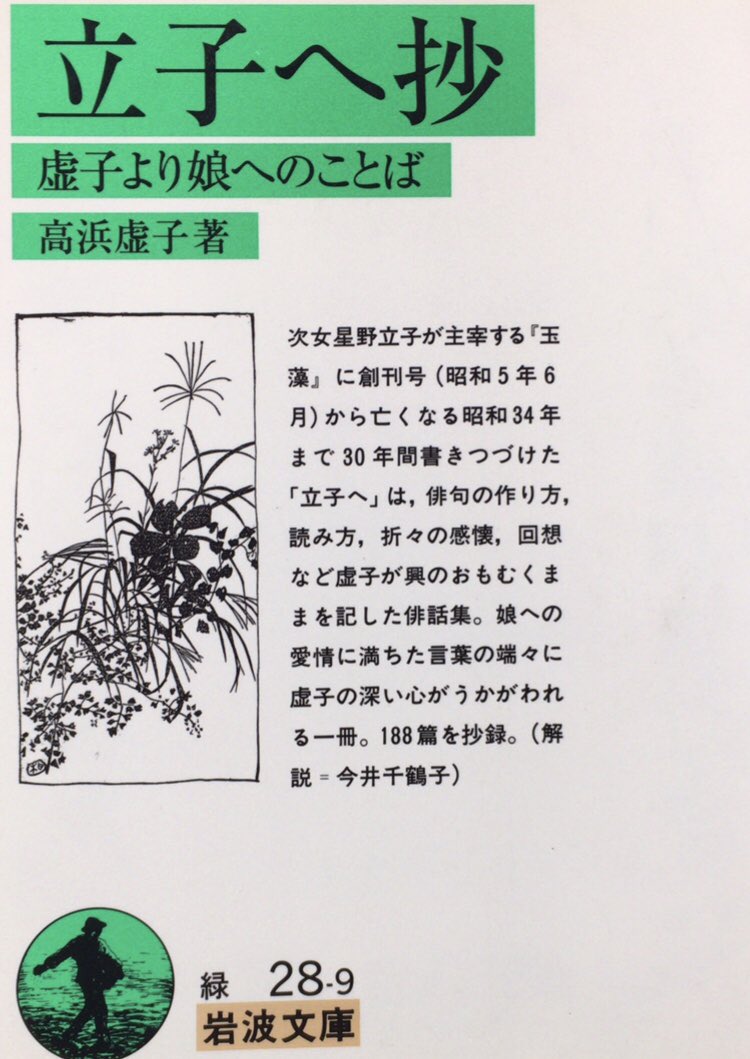 立子へ抄
虚子より娘へのことば
高浜虚子著
次女星野立子が主宰する『玉
藻』に創刊号(昭和5年6
月)から亡くなる昭和34年
まで30年間書きつづけた
「立子へ」は,俳句の作り方,
読み方,折々の感懐,回想
など虚子が興のおもむくま
まを記した俳話集。娘への
愛情に満ちた言葉の端々に
虚子の深い心がうかがわれ
る一冊。188篇を抄録。(解
説=今井千鶴子)
緑 28-9
岩波文庫